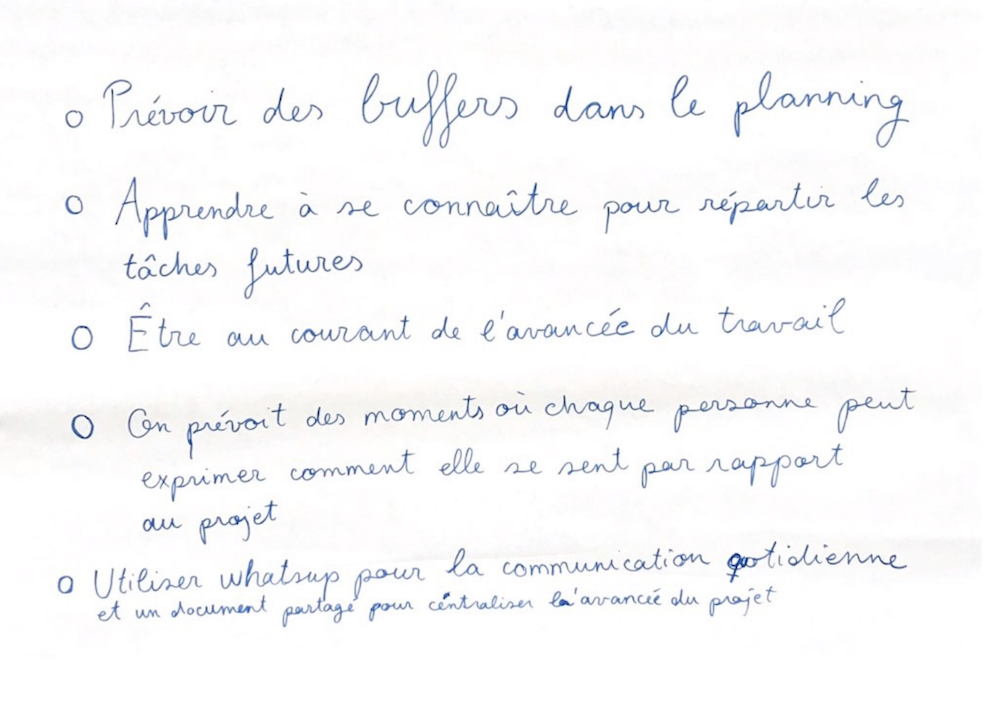 o Prévoir des buffers dans le planning
o Apprendre à se connaître pour répartir les
tâches futures
o Être au courant de l'avancée du travail
o On prévoit des moments où chaque personne peut
exprimer comment elle se sent par rapport
au projet
o Utiliser whatsup pour la communication quotidienne
et un document partagé pour centraliser l'avancée du projet